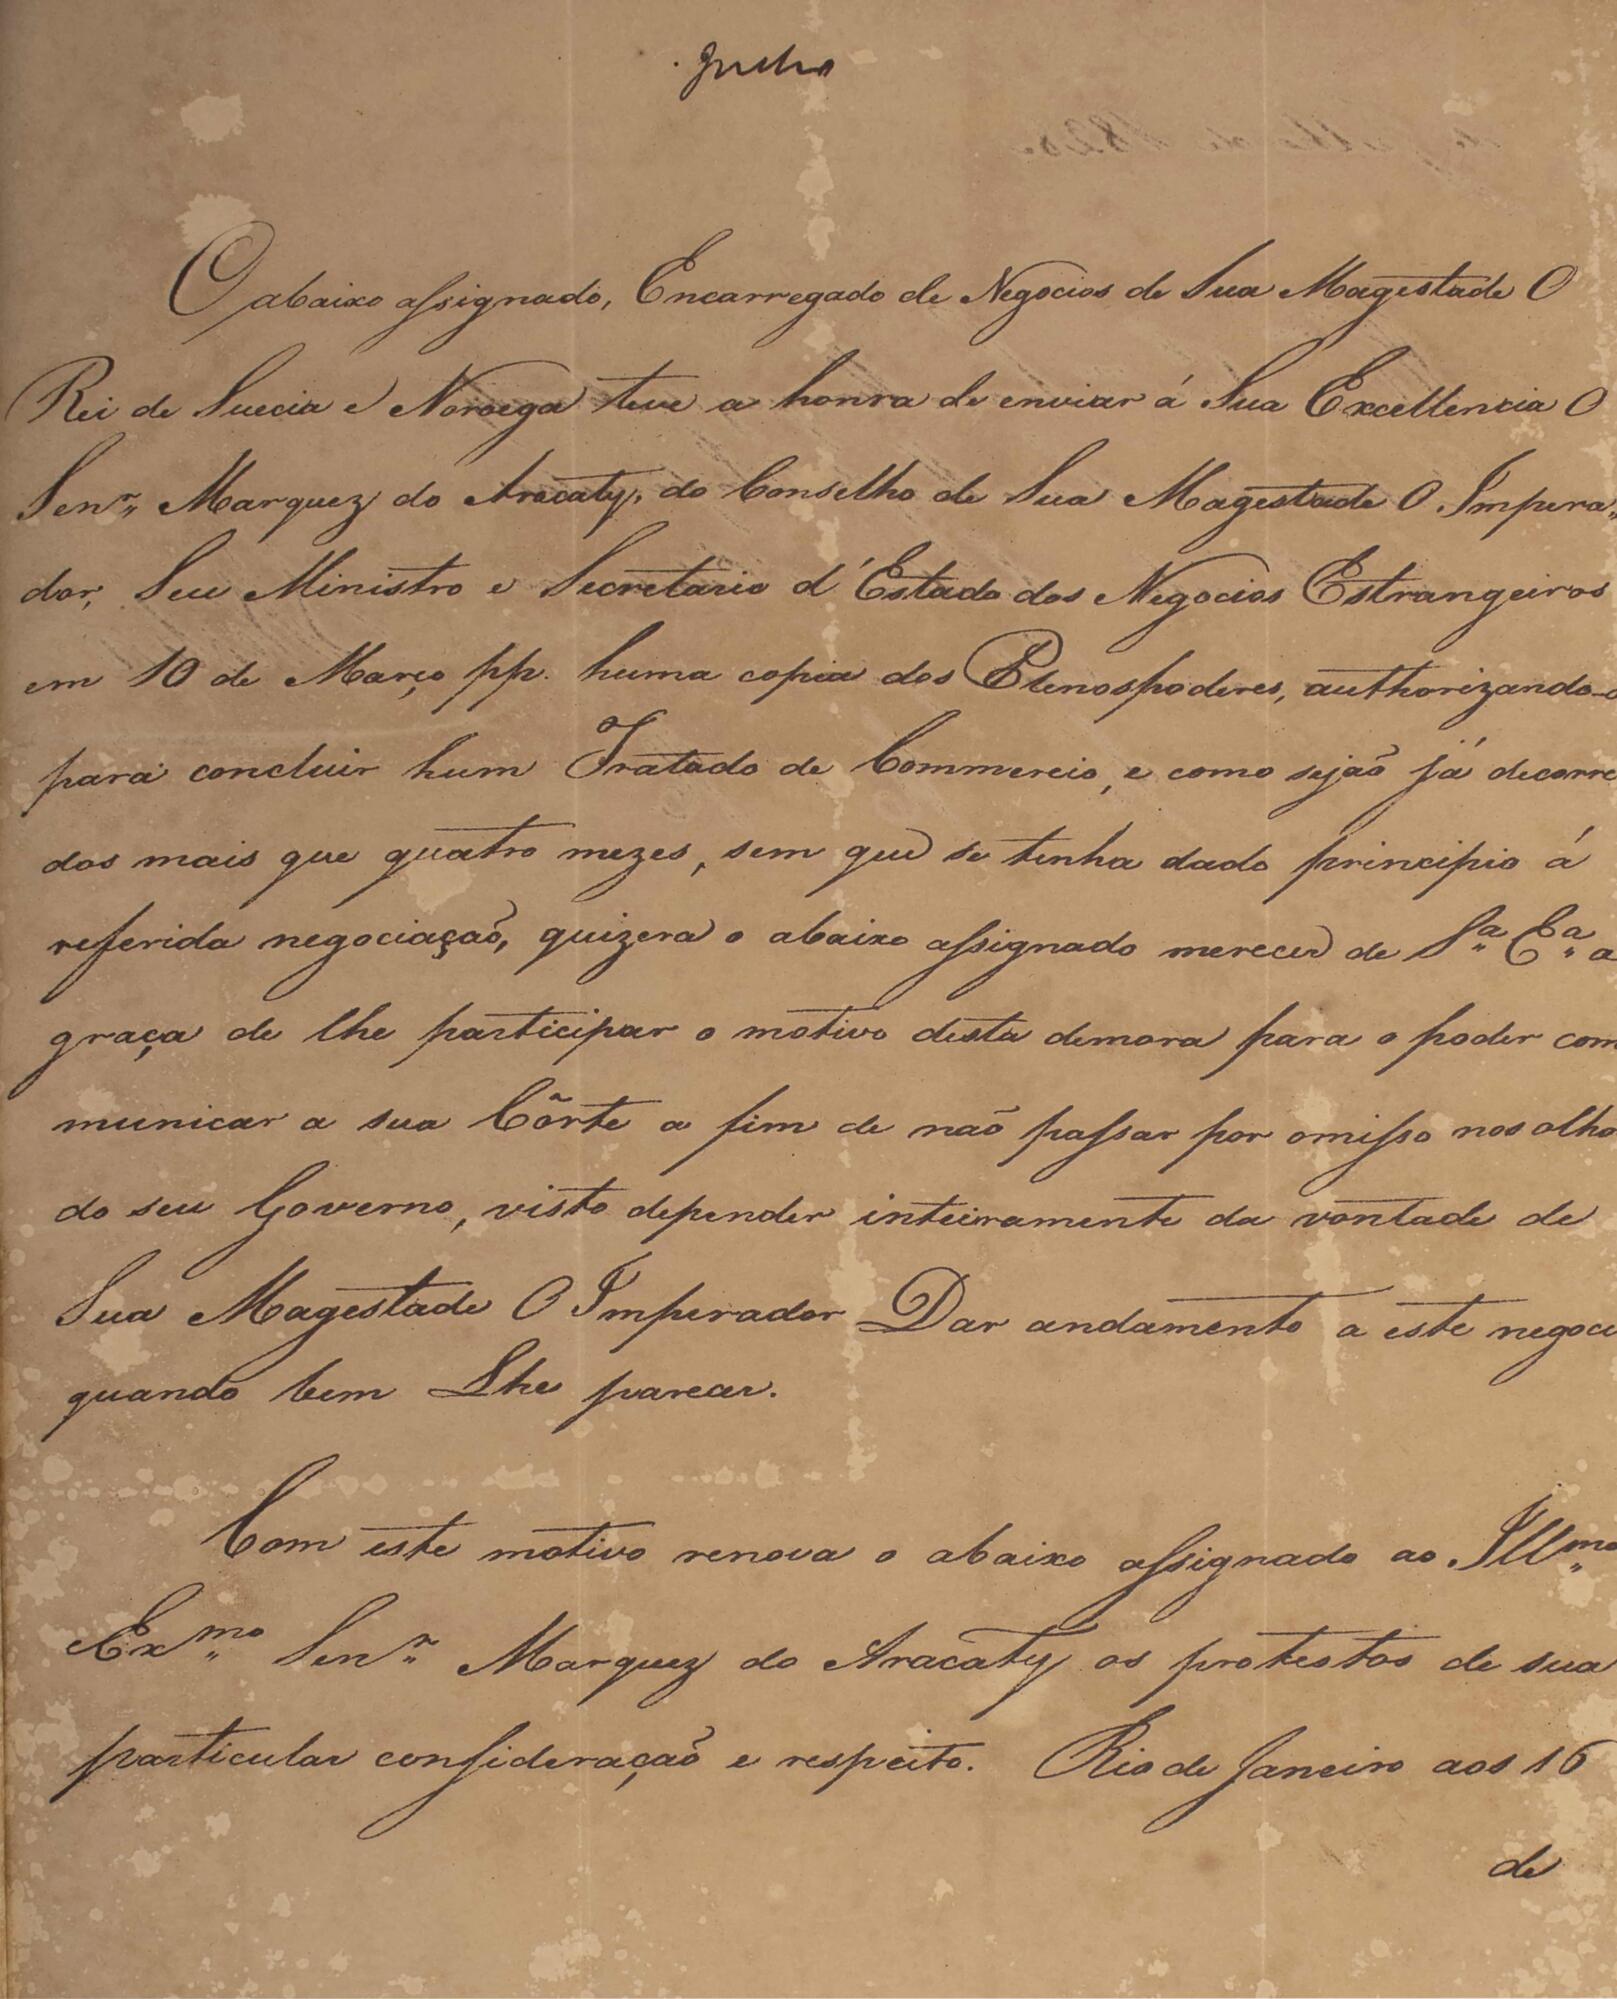 Julho
O abaixo assignado, Encarregado de Negocios de Sua Magestade O
Rei de Suecia e Noroega teve a honra de enviar á Sua Excellencia O
Senr. Marquez do Aracaty, do Conselho de Sua Magestade O Impera-
dor, Seu Ministro e Secretario d'Estado dos Negocios Estrangeiros
em 10 de Março pp. huma copia dos Plenospoderes, authorizando-o
para concluir hum Tratado de Commercio, e como sejão já decorre
dos mais que quatro mezes, sem que se tenha dado principio á
referida negociação, quizera o abaixo assignado merecer de Sa. Ea. a
graça de lhe participar o motivo desta demora para o poder com
municar a sua Côrte a fim de não passar por omisso nos olho
do seu Governo, visto depender inteiramente da vontade de
Sua Magestade O Imperador Dar andamento a este negoci
quando bem Lhe parecer.
Com este motivo renova o abaixo assignado ao Illmo.
Exmo. Senr. Marquez do Aracaty os protestos de sua
particular consideração e respeito. Rio de Janeiro aos 16
de